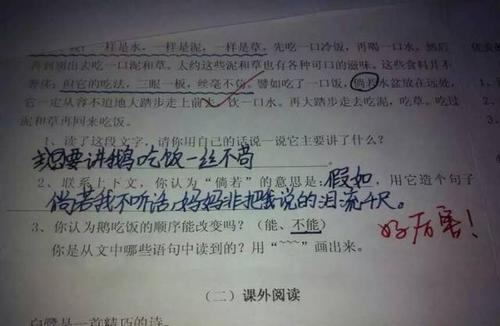 一样是水，一样是泥，一样是草。先吃一口冷饭，再喝一口水，然后
再到别出去吃一口泥和草。大约这些泥和草也有各种可口的滋味。这些食料并不
奢侈；但它的吃法，三眼一板，丝毫不苟。譬如吃了一口饭，倘若水盆放在远处，
它一定从容不迫地大踏步走上前去，饮一口水。再大踏步走去吃泥，吃草。吃过
泥和草再回来吃饭。
1、读了这段文字，请你用自己的话说一说它主要讲了什么？
主要讲鹅吃饭一丝不苟
2、联系上下文，你认为“倘若”的意思是：假如，用它造个句子
倘若我不听话，妈妈非把我说的泪流4尺。
3、你认为鹅吃饭的顺序能改变吗？（能、不能）
好厉害！
你是从文中哪些语句中读到的？用“~~~”画出来。
（二）课外阅读
白鹭是一首精巧的诗。